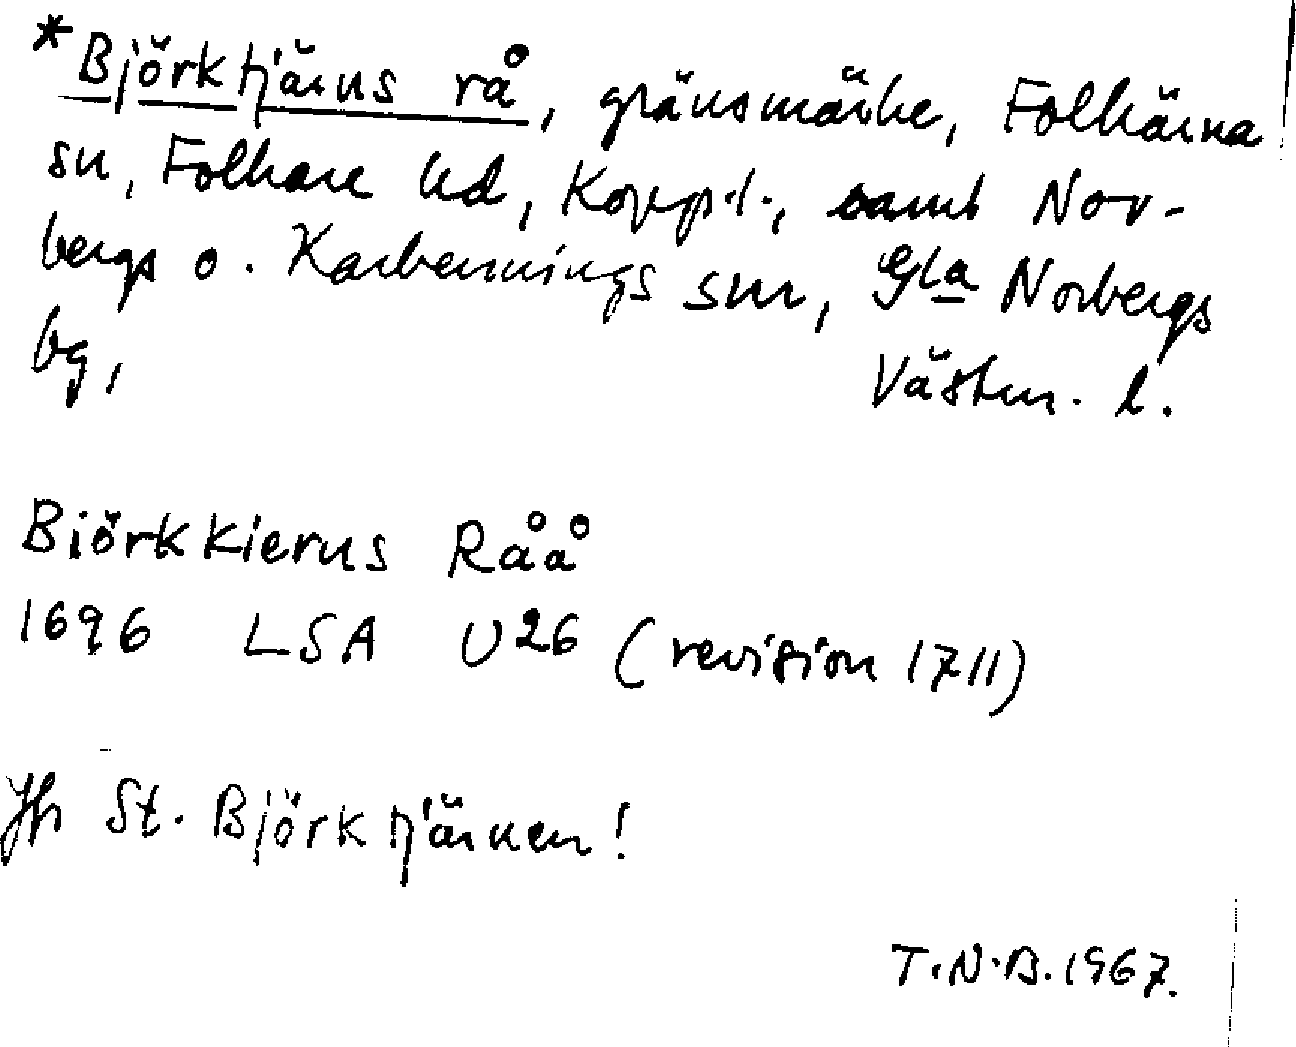 *Björktjärns rå, gränsmärke, Folkärna
sn, Folkare hd, Kopp.l., samt Nor-
bergs o. Karbennings snr, Gla Norbergs
bg, Västm. l.
Biörkkierns Råå
1696 LSA U26 (revision 1711)
Jfr St. Björktjärnen!
T.N.B. 1967.